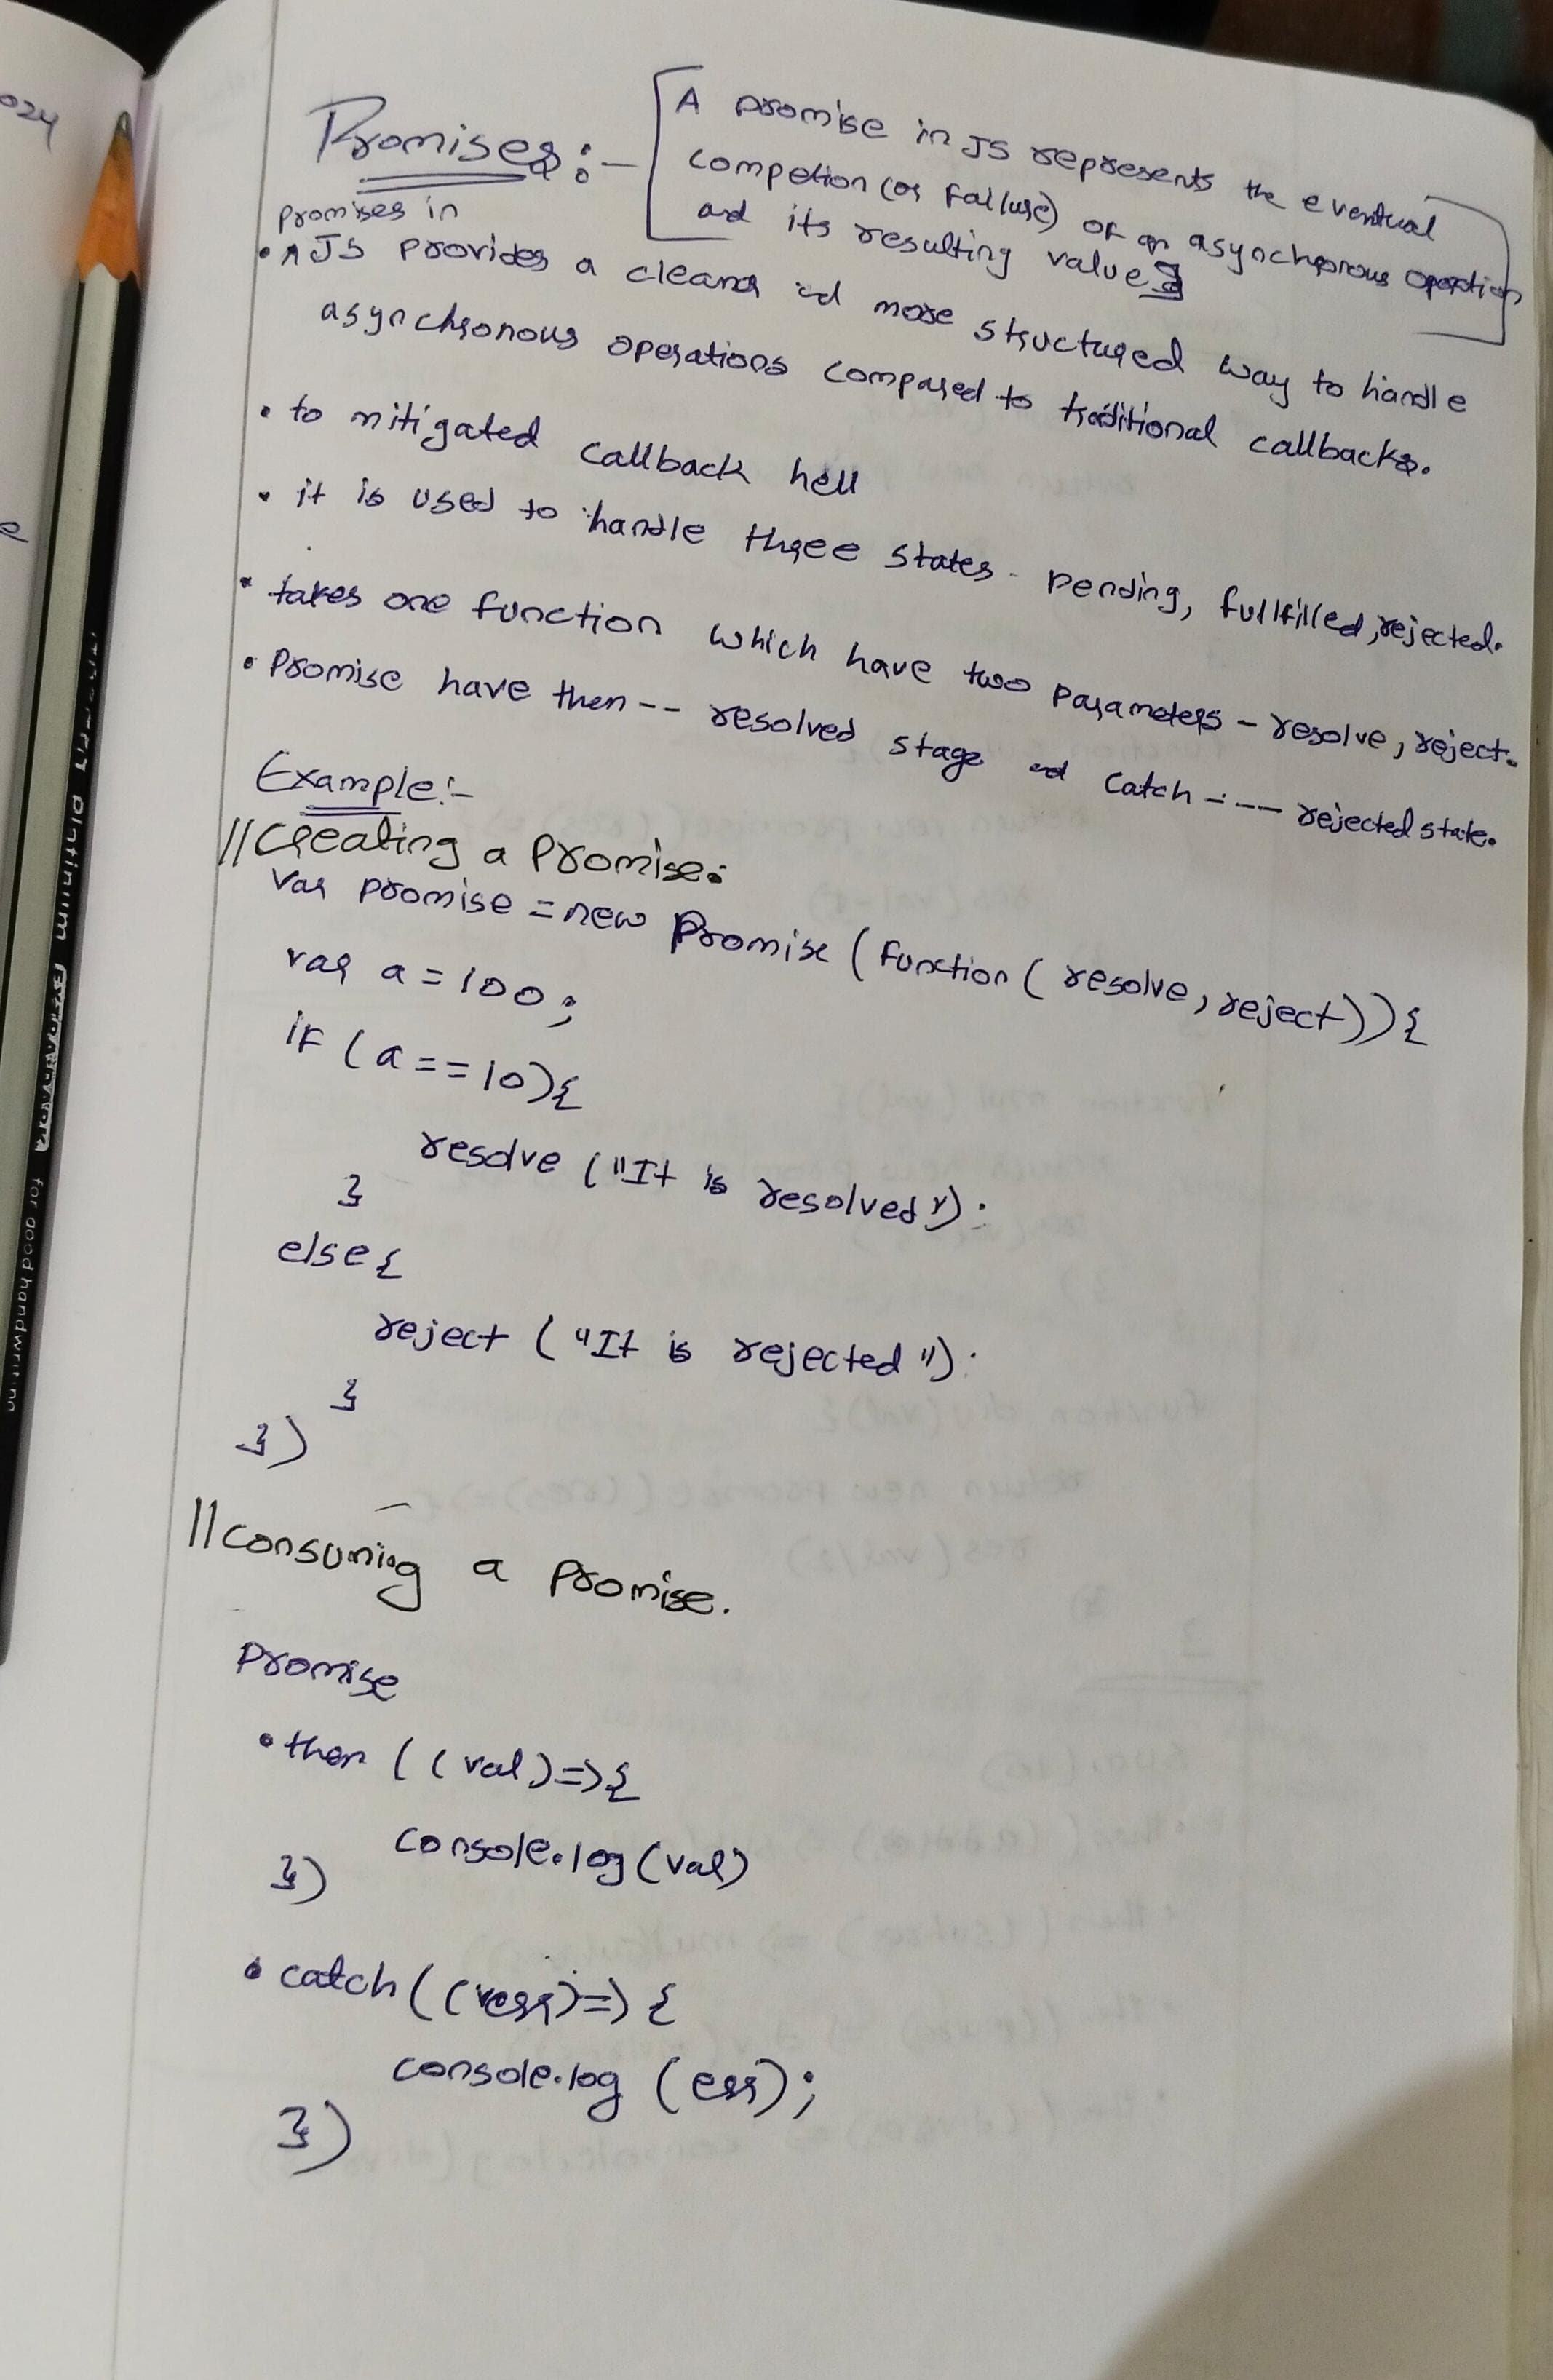 Promises:- [A promise in JS represents the eventual
competion (or failure) of an asynchronous operation
and its resulting value]
promises in
• ^ JS provides a cleaner and more structured way to handle
asynchronous operations compared to traditional callbacks.
• to mitigated callback hell
• it is used to handle three states - pending, fullfilled, rejected.
• takes one function which have two parameters - resolve, reject.
• Promise have then -- resolved stage and catch ---- rejected state.
Example:-
//Creating a Promise:
var promise = new Promise (function ( resolve, reject)) {
var a = 100;
if (a == 10) {
resolve ("It is resolved");
}
else {
reject ("It is rejected");
}
})
//consuming a promise.
Promise
.then ((val) => {
console.log (val)
})
.catch ((err) => {
console.log (err);
})
024
e
platinum
for good handwriting